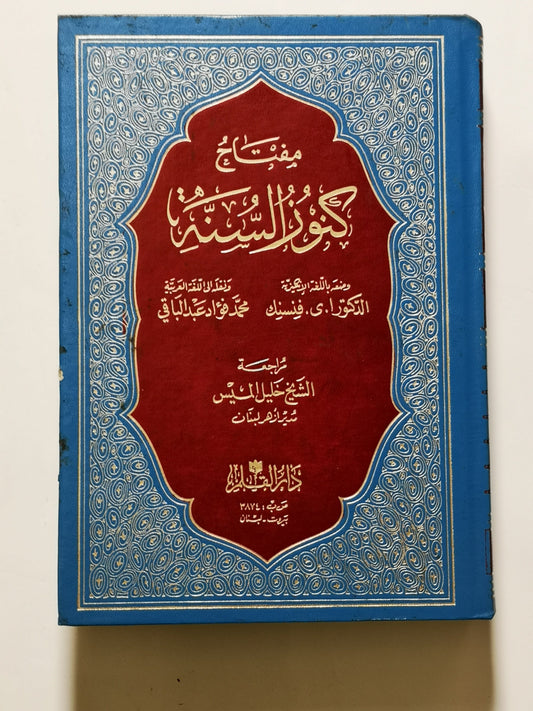 مفتاح
كنوز السنة
وضعه باللغة الإنجليزية
الدكتور ا. ى. فنسنك
ونقله الى اللغة العربية
محمد فؤاد عبد الباقي
مراجعة
الشيخ خليل الميس
مدير أزهر لبنان
دار القلم
ص.ب: ٣٨٧٤
بيروت - لبنان